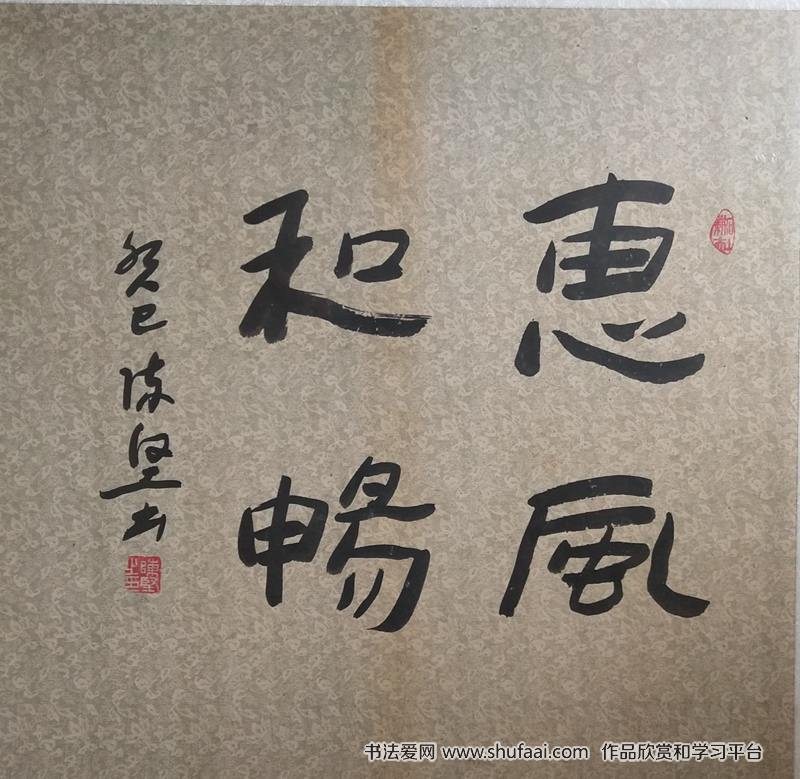 惠風
和暢
癸巳陈坚书
陳堅之印
书法爱网 www.shufaai.com 作品欣赏和学习平台